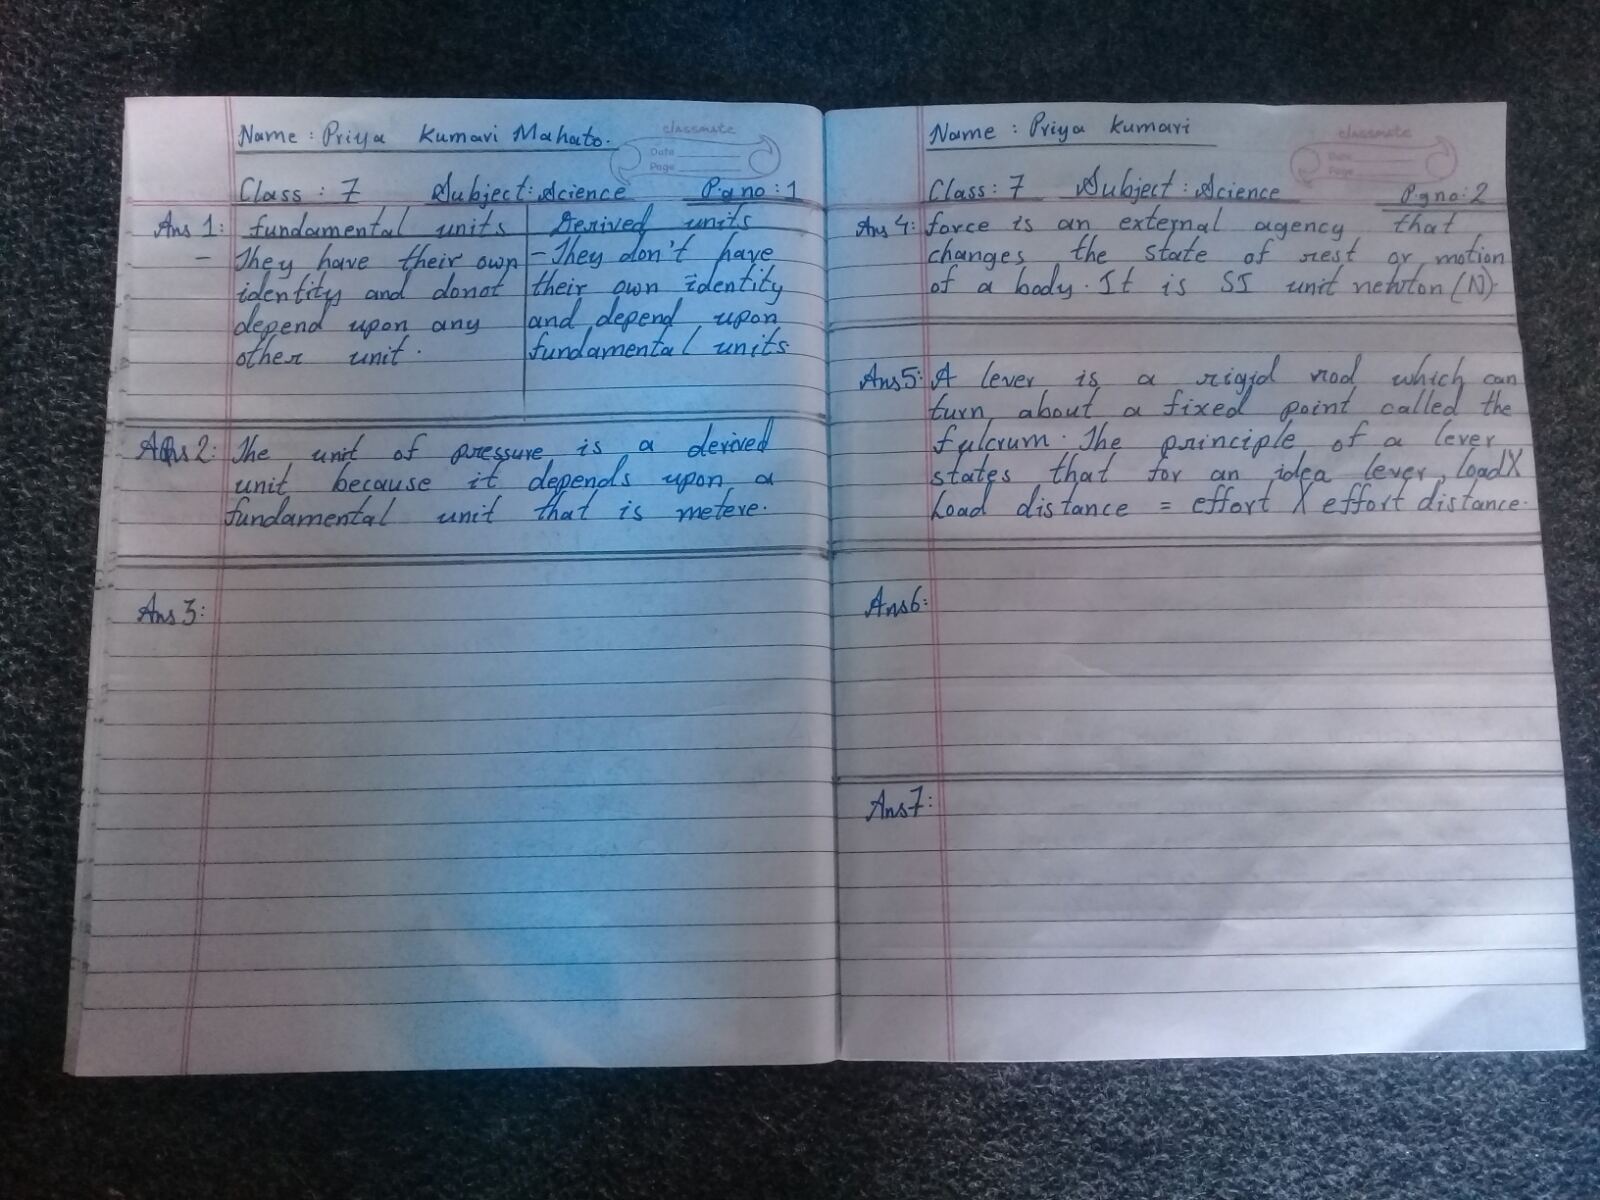 classmate
Date
Page
Name : Priya Kumari Mahato.
Class : 7 Subject: Science Pg no : 1
Ans 1: fundamental units Derived units
– They have their own – They don't have
identity and donot their own identity
depend upon any and depend upon
other unit. fundamental units.
Ans 2: The unit of pressure is a derived
unit because it depends upon a
fundamental unit that is metere.
Ans 3:
classmate
Date
Page
Name : Priya Kumari
Class : 7 Subject : Science Pg no : 2
Ans 4: force is an external agency that
changes the state of rest or motion
of a body. It is SI unit newton (N).
Ans 5: A lever is a rigid rod which can
turn about a fixed point called the
fulcrum. The principle of a lever
states that for an idea lever, load X
Load distance = effort X effort distance.
Ans 6:
Ans 7: